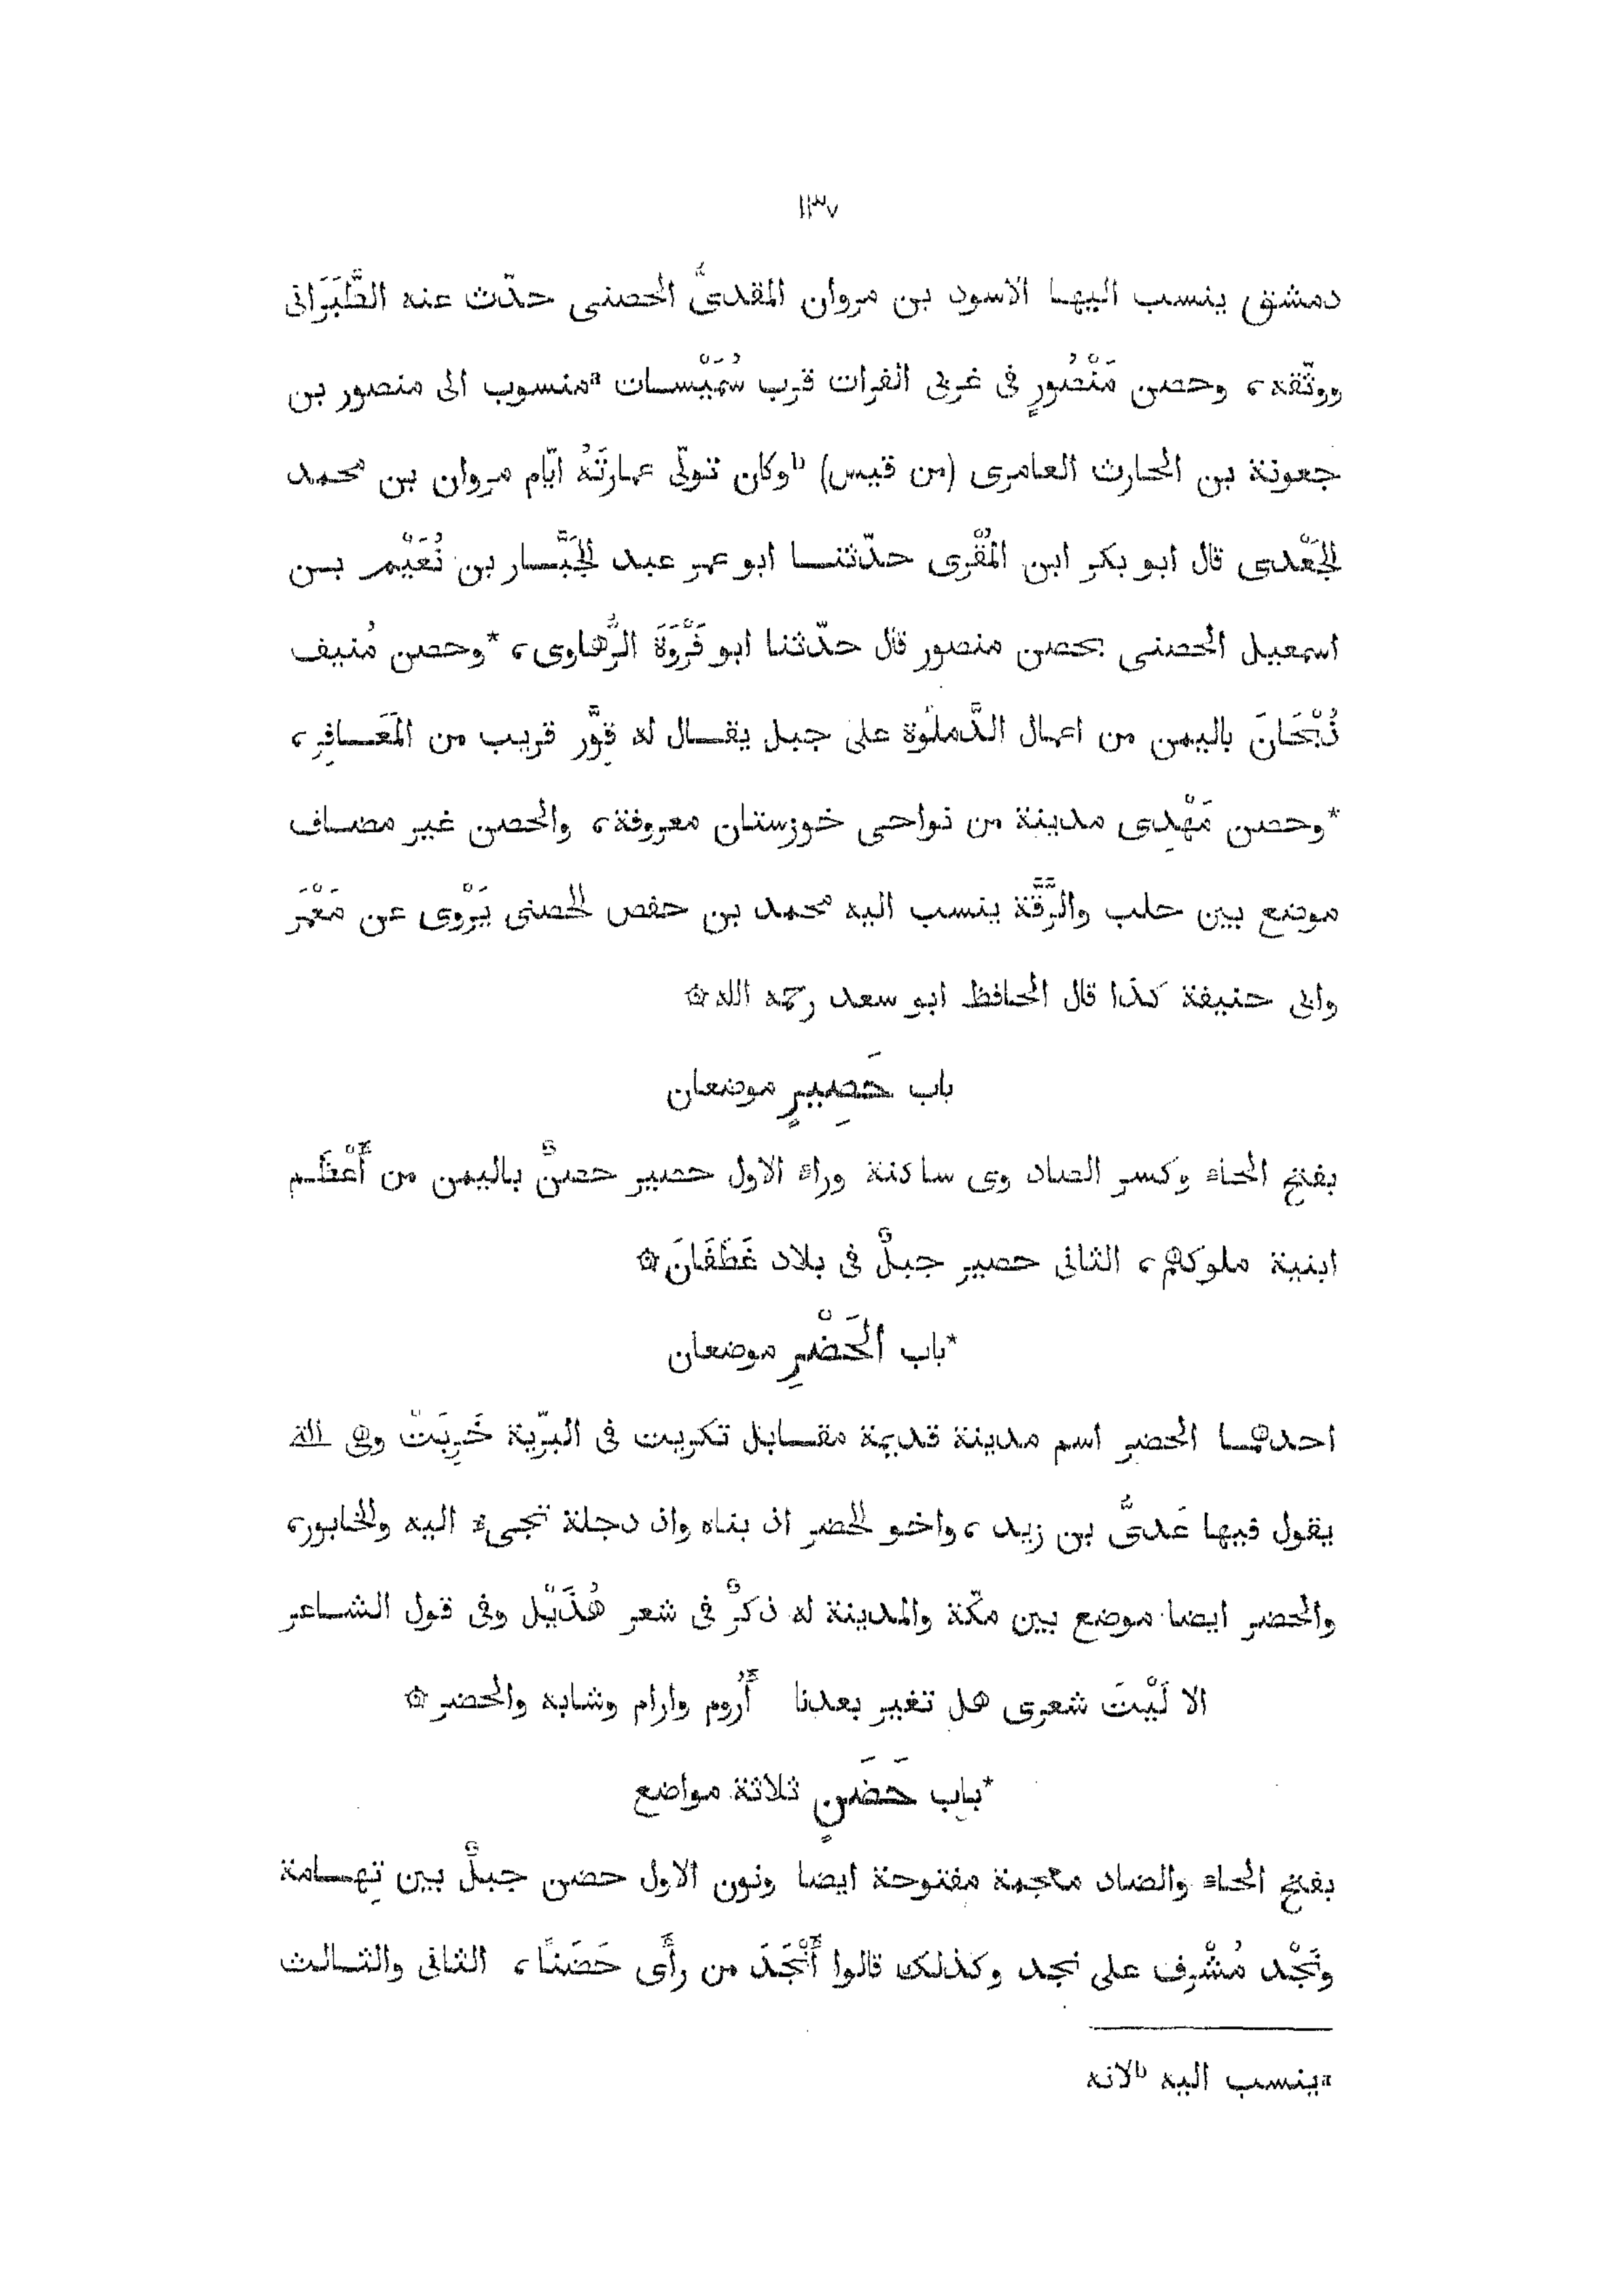 ١٣٧
دمشق ينسب اليها الاسود بن مروان المقدىُّ الحصنى حدّث عنه الطَّبَرَانى
ووثّقه، وحصن مَنْصُورٍ فى غربى الفرات قرب سُمَيْسات ªمنسوب الى منصور بن
جعونة بن الحارث العامرى (من قيس) ᵇوكان تولّى عمارتَهُ ايّام مروان بن محمد
الجَعْدى قال ابو بكر ابن المُقْرى حدّثنا ابو عمر عبد الجَبَّار بن نُعَيْم بن
اسمعيل الحصنى بحصن منصور قال حدّثنا ابو فَرْوَةَ الرُّهاوى، *وحصن مُنيف
ذُبْحَانَ باليمن من اعمال الدَّملُوة على جبل يقال له قِوَّر قريب من المَعَافِر،
*وحصن مَهْدِى مدينة من نواحى خوزستان معروفة، والحصن غير مضاف
موضع بين حلب والرَّقَّة ينسب اليه محمد بن حفص الحصنى يَرْوى عن مَعْمَر
وابى حنيفة كذا قال الحافظ ابو سعد رحمه الله ۞
باب حَصِيرٍ موضعان
بفتح الحاء وكسر الصاد وى ساكنة وراء الاول حصير حصنٌ باليمن من أَعْظَم
ابنية ملوكهم، الثانى حصير جبلٌ فى بلاد غَطَفَانَ ۞
*باب الحَضْرِ موضعان
احدهما الحضر اسم مدينة قديمة مقابل تكريت فى البرّية خَرِبَتْ وهى التى
يقول فيها عَدىُّ بن زيد، واخو الحضر اذ بناه واذ دجلة تجىء اليه والخابور،
والحضر ايضا موضع بين مكّة والمدينة له ذكرٌ فى شعر هُذَيْل وفى قول الشاعر
الا لَيْتَ شعرى هل تغير بعدنا أَرُوم وارام وشابه والحضر ۞
*باب حَضَنٍ ثلاثة مواضع
بفتح الحاء والضاد معجمة مفتوحة ايضا ونون الاول حضن جبلٌ بين تِهامة
ونَجْد مُشْرِف على نجد وكذلك قالوا أَنْجَدَ من رأَى حَضَنًا، الثانى والثالث
ªينسب اليه ᵇلانه